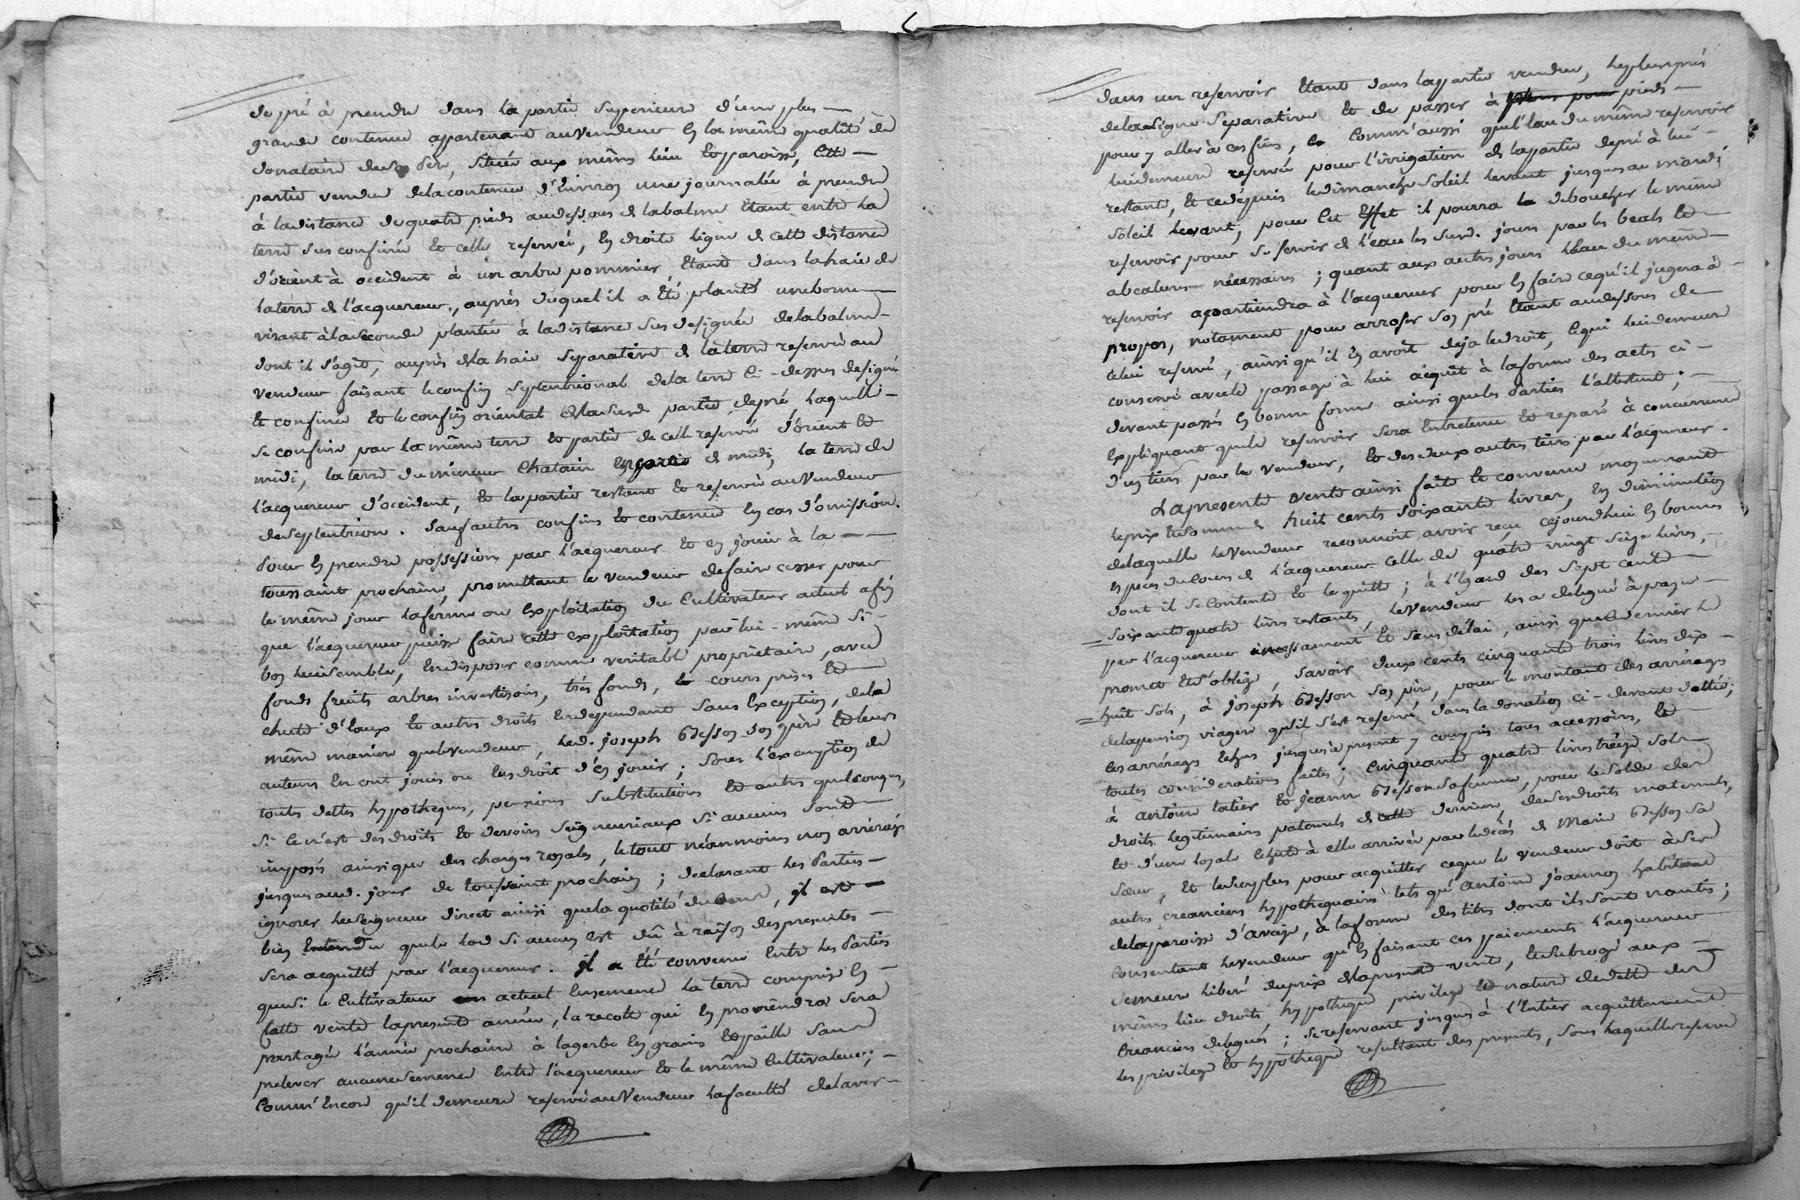 de pré à prendre dans la partie superieure d'une plus
grande contenue appartenant au vendeur en la même qualité de
donataire de son père, située aux mêmes lieu et paroisse, cette
partie vendue de la contenue d'environ une journalée à prendre
à la distance de quatre pieds au dessous de la balme étant entre la
terre sus confinée et celle reservée, en droite ligne de cette distance
d'orient à occident à un arbre pommier, étant dans la haie de
la terre de l'acquereur, auprès duquel il a été planté une borne
visant à la seconde plantée à la distance sus designée de la balme
dont il s'agit, auprès de la haie separative de la terre reservée au
vendeur faisant le confin septentrional de la terre ci-dessus designée
et confinée et le confin oriental de la susd. partie de pré laquelle
se confine par la même terre et partie de celle reservée d'orient et
midi, la terre du mineur Chatain en partie de midi, la terre de
l'acquereur d'occident, et la partie restant et reservée au vendeur
de septentrion. Sauf autres confins et contenue en cas d'omission.
Pour en prendre possession par l'acquereur et en jouir à la
toussaint prochaine, promettant le vendeur de faire cesser pour
le même jour la ferme ou exploitation du cultivateur actuel afin
que l'acquereur puisse faire cette exploitation par lui-même si
bon lui semble, en disposer comme veritable proprietaire, avec
fonds fruits arbres investisons, très fonds, cours prises et
chute d'eaux et autres droits en dependants sans exception, de la
même maniere que le vendeur, led. joseph Besson son père et leurs
auteurs en ont joui ou eu droit d'en jouir; sous l'exemption de
toutes dettes hypotheques, pensions substitutions et autres quelconques,
si ce n'est des droits et devoirs seigneuriaux si aucuns sont
imposés ainsi que des charges royales, le tout néanmoins non arréragé
jusques aud. jour de toussaint prochain; declarant les parties
ignorer le seigneur direct ainsi que la quotité du cens, il est
bien entendu que le lod si aucun est dû à raison des presentes
sera acquitté par l'acquereur. il a été convenu entre les parties
que si le cultivateur actuel ensemence la terre comprise en
cette vente la presente année, la recolte qui en proviendra sera
partagée l'année prochaine à la gerbe en grains et paille sans
prelever aucune semence entre l'acquereur et le même cultivateur;
comm'encore qu'il demeure reservé au vendeur la faculté de laver
dans un reservoir étant dans la partie vendue, le plus près
de la ligne separative et de passer à pieds
pour y aller à ces fins, comm'aussi que l'eau du même reservoir
lui demeure reservée pour l'irrigation de la partie de pré à lui
restante, et ce depuis le dimanche soleil levant jusques au mardi
soleil levant, pour cet effet il pourra deboucher le même
reservoir pour se servir de l'eau les susd. jours par les beals et
abcaleurs necessaires; quant aux autres jours l'eau du même
reservoir appartiendra à l'acquereur pour en faire ce qu'il jugera à
propos, notament pour arroser son pré étant au dessous de
celui reservé, ainsi qu'il en avoit deja le droit, lequel lui demeure
conservé avec le passage à lui acquit à la forme des actes ci
devant passés en bonne forme ainsi que les parties l'attestent;
expliquant que le reservoir sera entretenu et reparé à concurrence
d'un tiers par le vendeur, et des deux autres tiers par l'acquereur.
La presente vente ainsi faite et convenue moyennant
le prix et somme de huit cents soixante livres, en diminution
de laquelle le vendeur reconnoit avoir reçu cejourdhui en bonnes
especes du cours de l'acquereur celle de quatre vingt seize livres,
dont il se contente et le quitte; à l'égard des sept cents
soixante quatre livres restants, le vendeur les a delegué à payer
par l'acquereur incessament et sans délai, ainsi que ce dernier le
promet et s'oblige, savoir deux cents cinquante trois livres dix
huit sols, à joseph Besson son père, pour le montant des arrérages
de la pension viagere qu'il s'est reservé dans la donation ci-devant dattée;
les arrérages echus jusqu'à present y compris tous accessoires, et
toutes considerations faites; cinquante quatre livres treize sols
à antoine tatier et jeanne Besson sa femme, pour le solde des
droits legitimaires paternels de cette derniere, de ses droits maternels,
et d'une hoyrie echute à elle arrivée par le decès de Marie Besson sa
sœur, et le surplus pour acquitter ce que le vendeur doit à ses
autres creanciers hypothequaires tels qu'antoine joannon habitant
de la paroisse d'avaize, à la forme des titres dont ils sont nantis;
consentant le vendeur qu'en faisant ces paiements l'acquereur
demeure liberé du prix de la presente vente, et subrogé aux
mêmes lieu droits hypotheque privilege et nature de dette des
creanciers delegués; se reservant jusques à l'entier acquittement
les privilege et hypotheque resultant des presentes, sous laquelle reserve